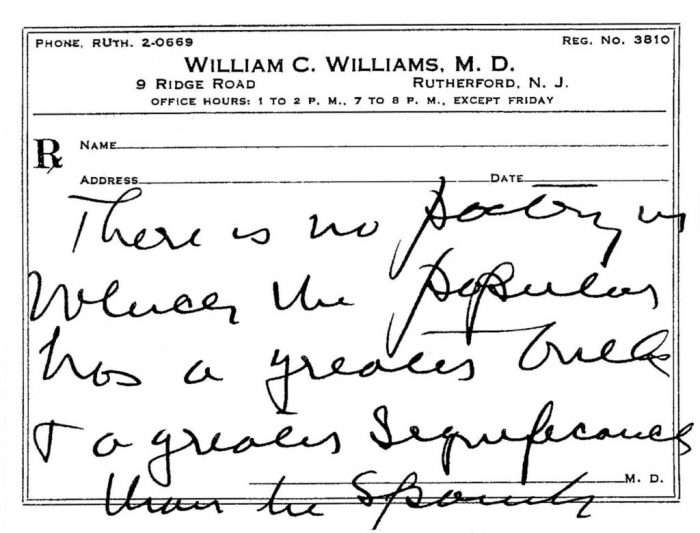 PHONE, RUTH. 2-0669 REG. NO. 3810
WILLIAM C. WILLIAMS, M. D.
9 RIDGE ROAD RUTHERFORD, N. J.
OFFICE HOURS: 1 TO 2 P. M., 7 TO 8 P. M., EXCEPT FRIDAY
℞ NAME
ADDRESS DATE
There is no poetry in
which the popular
has a greater bulk
+ a greater significance
M. D.
than in Spanish